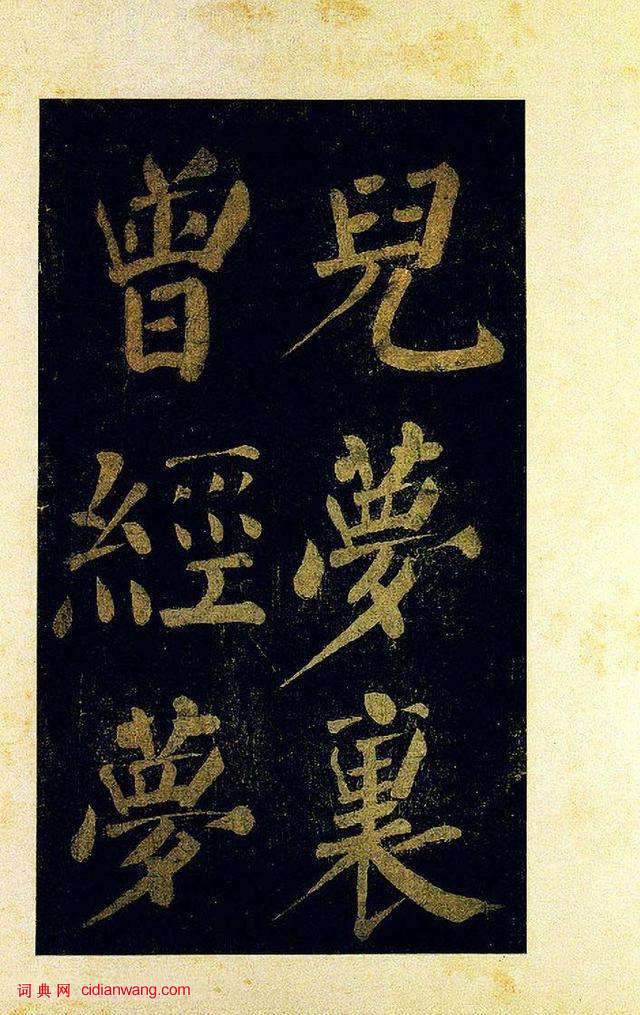 兒夢裏
曾經夢
词典网 cidianwang.com